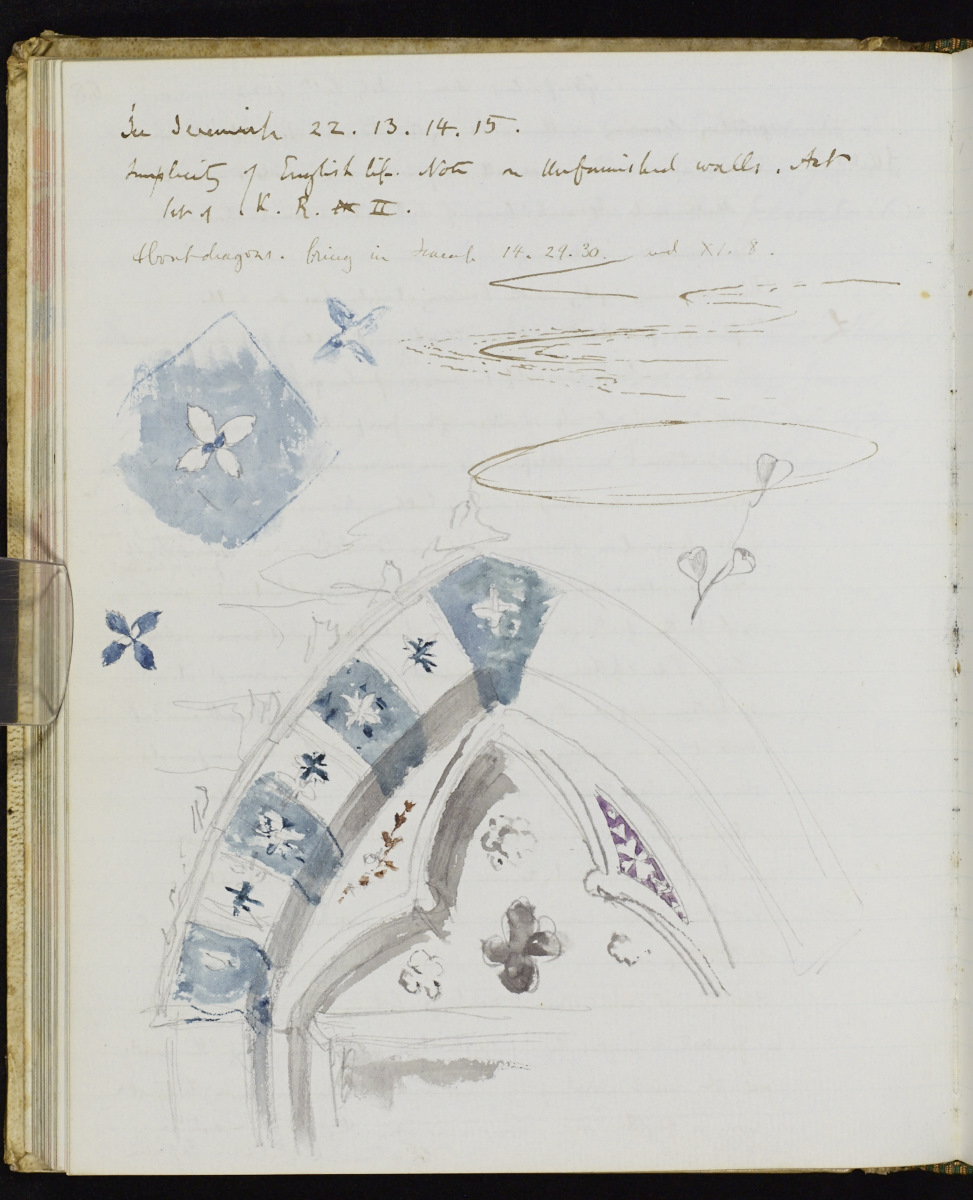 In Jeremiah 22. 13. 14. 15.
Simplicity of English life. Note on Unfurnished walls. Art
list of K. R. II.
About dragons. bring in 14. 29. 30. and XI. 8.